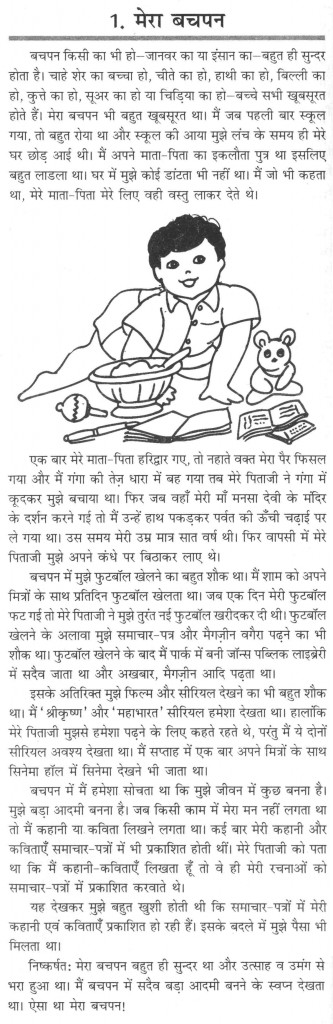 1. मेरा बचपन
बचपन किसी का भी हो–जानवर का या इंसान का–बहुत ही सुन्दर
होता है। चाहे शेर का बच्चा हो, चीते का हो, हाथी का हो, बिल्ली का
हो, कुत्ते का हो, सूअर का हो या चिड़िया का हो–बच्चे सभी खूबसूरत
होते हैं। मेरा बचपन भी बहुत खूबसूरत था। मैं जब पहली बार स्कूल
गया, तो बहुत रोया था और स्कूल की आया मुझे लंच के समय ही मेरे
घर छोड़ आई थी। मैं अपने माता-पिता का इकलौता पुत्र था इसलिए
बहुत लाडला था। घर में मुझे कोई डांटता भी नहीं था। मैं जो भी कहता
था, मेरे माता-पिता मेरे लिए वही वस्तु लाकर देते थे।
एक बार मेरे माता-पिता हरिद्वार गए, तो नहाते वक्त मेरा पैर फिसल
गया और मैं गंगा की तेज़ धारा में बह गया तब मेरे पिताजी ने गंगा में
कूदकर मुझे बचाया था। फिर जब वहाँ मेरी माँ मनसा देवी के मंदिर
के दर्शन करने गई तो मैं उन्हें हाथ पकड़कर पर्वत की ऊँची चढ़ाई पर
ले गया था। उस समय मेरी उम्र मात्र सात वर्ष थी। फिर वापसी में मेरे
पिताजी मुझे अपने कंधे पर बिठाकर लाए थे।
बचपन में मुझे फुटबॉल खेलने का बहुत शौक था। मैं शाम को अपने
मित्रों के साथ प्रतिदिन फुटबॉल खेलता था। जब एक दिन मेरी फुटबॉल
फट गई तो मेरे पिताजी ने मुझे तुरंत नई फुटबॉल खरीदकर दी थी। फुटबॉल
खेलने के अलावा मुझे समाचार-पत्र और मैगज़ीन वगैरा पढ़ने का भी
शौक था। फुटबॉल खेलने के बाद मैं पार्क में बनी जॉन्स पब्लिक लाइब्रेरी
में सदैव जाता था और अखबार, मैगज़ीन आदि पढ़ता था।
इसके अतिरिक्त मुझे फिल्म और सीरियल देखने का भी बहुत शौक
था। मैं ‘श्रीकृष्ण’ और ‘महाभारत’ सीरियल हमेशा देखता था। हालाँकि
मेरे पिताजी मुझसे हमेशा पढ़ने के लिए कहते रहते थे, परंतु मैं ये दोनों
सीरियल अवश्य देखता था। मैं सप्ताह में एक बार अपने मित्रों के साथ
सिनेमा हॉल में सिनेमा देखने भी जाता था।
बचपन में मैं हमेशा सोचता था कि मुझे जीवन में कुछ बनना है।
मुझे बड़ा आदमी बनना है। जब किसी काम में मेरा मन नहीं लगता था
तो मैं कहानी या कविता लिखने लगता था। कई बार मेरी कहानी और
कविताएँ समाचार-पत्रों में भी प्रकाशित होती थीं। मेरे पिताजी को पता
था कि मैं कहानी-कविताएँ लिखता हूँ तो वे ही मेरी रचनाओं को
समाचार-पत्रों में प्रकाशित करवाते थे।
यह देखकर मुझे बहुत खुशी होती थी कि समाचार-पत्रों में मेरी
कहानी एवं कविताएँ प्रकाशित हो रही हैं। इसके बदले में मुझे पैसा भी
मिलता था।
निष्कर्षत: मेरा बचपन बहुत ही सुन्दर था और उत्साह व उमंग से
भरा हुआ था। मैं बचपन में सदैव बड़ा आदमी बनने के स्वप्न देखता
था। ऐसा था मेरा बचपन!